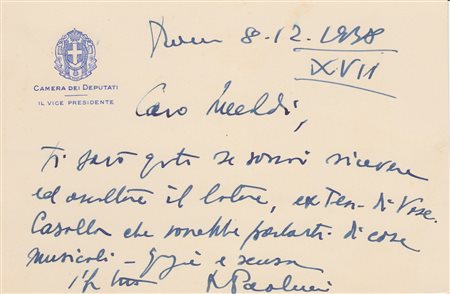 CAMERA DEI DEPUTATI
IL VICE PRESIDENTE
Roma 8.12.1938
XVII
Caro
Ti sarò grato se vorrai ricevere
ed ascoltare il latore, ex Ten. di Vasc.
Casella che vorrebbe parlarti di cose
musicali - Grazie e scusa
il tuo R Paolucci